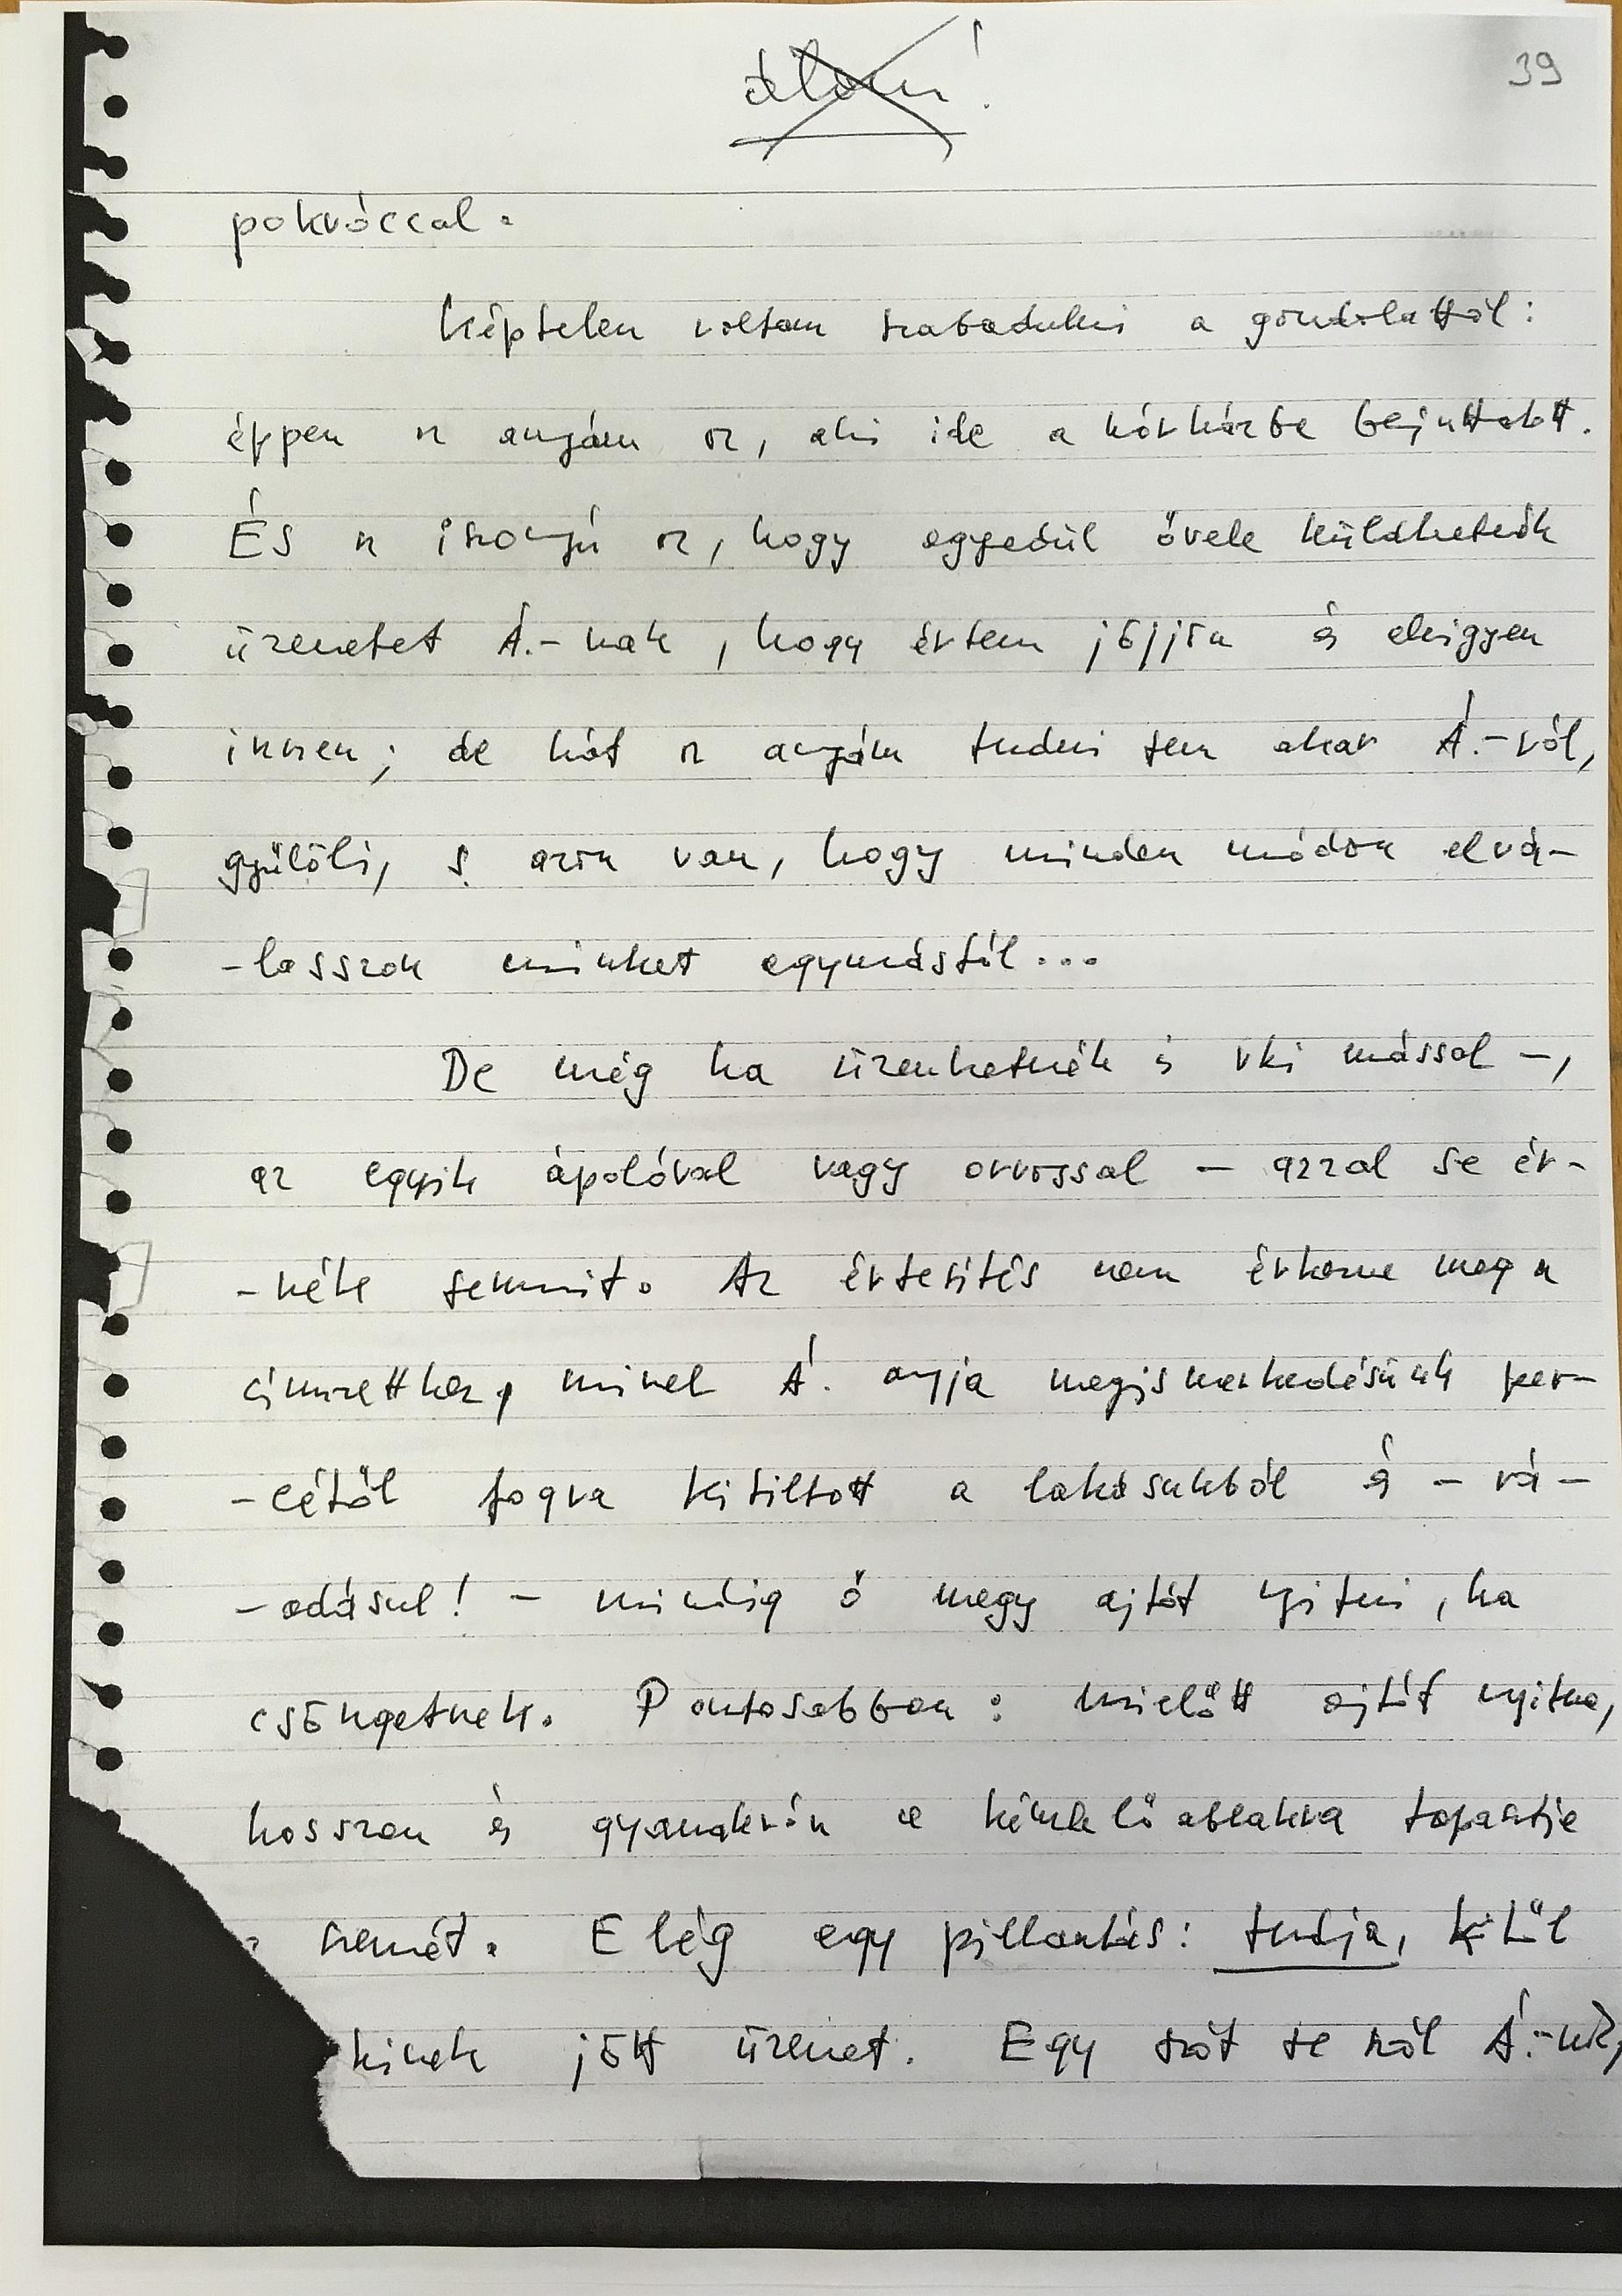 39
pokróccal.
Képtelen voltam szabadulni a gondolattól:
éppen az anyám az, aki ide a kórházba bejuttatott.
És az iszonyú az, hogy egyedül ővele küldhetnék
üzenetet Á.-nak, hogy értem jöjjön és elvigyen
innen; de hát az anyám tudni sem akar Á.-ról,
gyűlöli, s azon van, hogy minden módon elvá-
-lasszon minket egymástól...
De még ha üzenhetnék is vki mással –,
az egyik ápolóval vagy orvossal – azzal se ér-
-nék semmit. Az értesítés nem érkezne meg a
címzetthez, mivel Á. anyja megismerkedésünk per-
-cétől fogva kitiltott a lakásukból és – rá-
-adásul! – mindig ő megy ajtót nyitni, ha
csöngetnek. Pontosabban: mielőtt ajtót nyitna,
hosszan és gyanakvón a kémlelőablakra tapasztja
a szemét. Elég egy pillantás: tudja, kitől
kinek jött üzenet. Egy szót se szól Á.-nak,